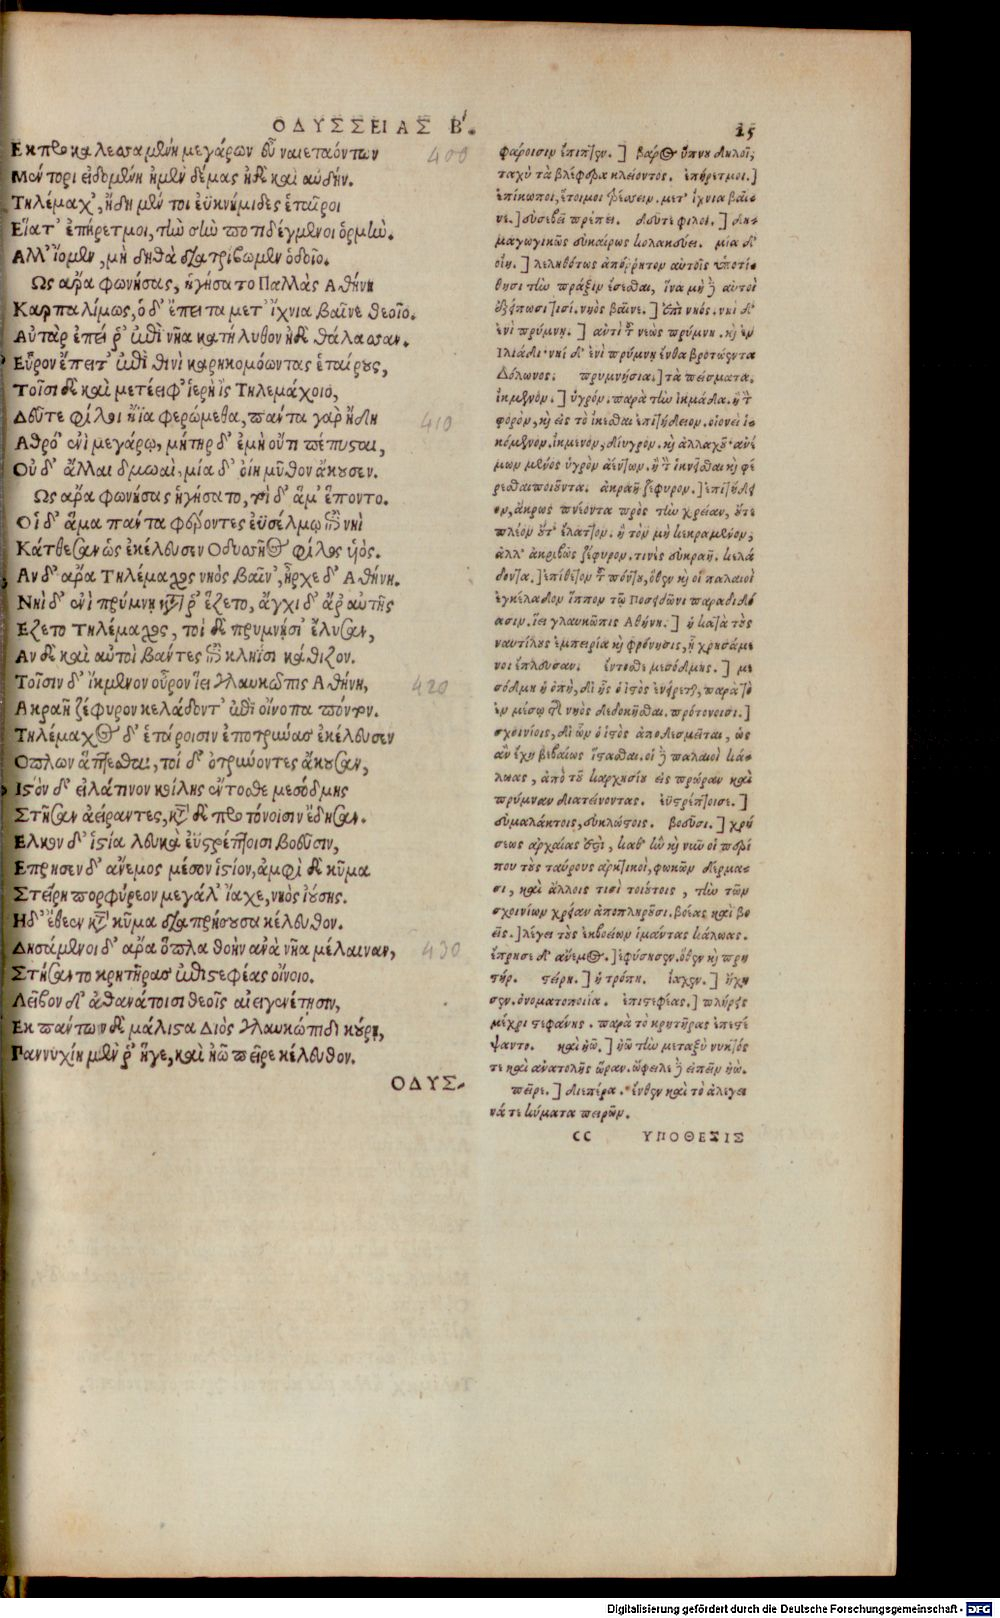 ΟΔΥΣΣΕΙΑΣ Β΄.
25
Εκπροκαλεσσαμένη μεγάρων εὖ ναιεταόντων
400
Μέντορι εἰδομένη ἠμὲν δέμας ἠδὲ καὶ αὐδήν.
Τηλέμαχ', ἤδη μέν τοι ἐϋκνήμιδες ἑταῖροι
Εἵατ' ἐπήρετμοι, τὴν σὴν ποτιδέγμενοι ὁρμήν.
Αλλ' ἴομεν, μὴ δηθὰ διατρίβωμεν ὁδοῖο.
Ως ἄρα φωνήσας, ἡγήσατο Παλλὰς Αθήνη
Καρπαλίμως, ὁ δ' ἔπειτα μετ' ἴχνια βαῖνε θεοῖο.
Αὐτὰρ ἐπεί ῥ' ἐπὶ νῆα κατήλυθον ἠδὲ θάλασσαν.
Εὗρον ἔπειτ' ἐπὶ θινὶ καρηκομόωντας ἑταίρους,
Τοῖσι δὲ καὶ μετέειφ' ἱερὴ ἲς Τηλεμάχοιο,
Δεῦτε φίλοι ἤϊα φερώμεθα, πάντα γὰρ ἤδη
410
Αθρό' ἐνὶ μεγάρῳ, μήτηρ δ' ἐμὴ οὔτι πέπυσται,
Οὐδ' ἄλλαι δμωαὶ, μία δ' οἴη μῦθον ἄκουσεν.
Ως ἄρα φωνήσας ἡγήσατο, τοὶ δ' ἅμ' ἕποντο.
Οἱ δ' ἅμα πάντα φέροντες ἐϋσέλμῳ ἐπὶ νηῒ
Κάτθεσαν ὡς ἐκέλευσεν Οδυσσῆος φίλος υἱός.
Αν δ' ἄρα Τηλέμαχος νηὸς βαῖν', ἦρχε δ' Αθήνη.
Νηῒ δ' ἐνὶ πρύμνῃ κατ' ἄρ' ἕζετο, ἄγχι δ' ἄρ' αὐτῆς
Εζετο Τηλέμαχος, τοὶ δὲ πρυμνήσι' ἔλυσαν,
Αν δὲ καὶ αὐτοὶ βάντες ἐπὶ κληῖσι κάθιζον.
Τοῖσιν δ' ἴκμενον οὖρον ἵει γλαυκῶπις Αθήνη,
420
Ακραῆ ζέφυρον κελάδοντ' ἐπὶ οἴνοπα πόντον.
Τηλέμαχος δ' ἑτάροισιν ἐποτρύνας ἐκέλευσεν
Οπλων ἅπτεσθαι, τοὶ δ' ὀτρύνοντες ἄκουσαν,
Ιστὸν δ' εἰλάτινον κοίλης ἔντοσθε μεσόδμης
Στῆσαν ἀείραντες, κατὰ δὲ προτόνοισιν ἔδησαν.
Ελκον δ' ἱστία λευκὰ ἐϋστρέπτοισι βοεῦσιν,
Επρησεν δ' ἄνεμος μέσον ἱστίον, ἀμφὶ δὲ κῦμα
Στείρῃ πορφύρεον μεγάλ' ἴαχε, νηὸς ἰούσης.
Ηδ' ἔθεεν κατὰ κῦμα διαπρήσουσα κέλευθον.
Δησάμενοι δ' ἄρα ὅπλα θοὴν ἀνὰ νῆα μέλαιναν,
430
Στήσαντο κρητῆρας ἐπιστεφέας οἴνοιο.
Λεῖβον δ' ἀθανάτοισι θεοῖς αἰειγενέτῃσιν,
Εκ πάντων δὲ μάλιστα Διὸς γλαυκώπιδι κούρῃ,
Παννυχίη μέν ῥ' ἥγε, καὶ ἠῶ πεῖρε κέλευθον.
ΟΔΥΣ-
φάροισιν ἔπιπτεν. ] βάρος ὕπνου δηλοῖ,
ταχὺ τὰ βλέφαρα κλείοντος. ἐπήρετμοι.]
ἐπίκωποι, ἕτοιμοι ἐρέσσειν. μετ' ἴχνια βαῖ-
νε.] εὐσεβεῖ πρέπει. δεῦτε φίλοι. ] δη-
μαγωγικῶς εὐκαίρως κολακεύει. μία δ'
οἴη. ] λεληθότως ἀπόῤῥητον αὐτοῖς ὑποτί-
θησι τὴν πρᾶξιν ἔσεσθαι, ἵνα μὴ καὶ αὐτοὶ
ἐξείπωσί τισι. νηὸς βαῖνε. ] ἐπὶ νηός. νηῒ δ'
ἐνὶ πρύμνῃ. ] ἀντὶ τοῦ νεὼς πρύμνῃ. καὶ ἐν
Ιλιάδι· νηῒ δ' ἐνὶ πρύμνῃ ἔναρα βροτόεντα
Δόλωνος. πρυμνήσια.] τὰ πείσματα.
ἴκμενον. ] ὑγρόν. παρὰ τὴν ἰκμάδα. ἢ τὸν
φορὸν, καὶ εἰς τὸ ἱκέσθαι ἐπιτήδειον. οἱονεὶ ἱ-
κόμενον. ἴκμενον, δίυγρον. καὶ ἀλλαχοῦ· ἀνέ
μων μένος ὑγρὸν ἀέντων. ἢ τὸν ἱκνεῖσθαι καὶ φέ
ρεσθαι ποιοῦντα. ἀκραῆ ζέφυρον. ] ἐπιτήδει
ον, ἄκρως πνέοντα πρὸς τὴν χρείαν, οὔτε
πλέον οὔτ' ἔλαττον. ἢ τὸν μὴ κεκραμένον,
ἀλλ' ἀκριβῶς ζέφυρον. τινὲς εὐκραῆ. κελά
δοντα. ] ἐπίθετον τοῦ πόντου, ὅθεν καὶ οἱ παλαιοὶ
ἐγκέλαδον ἵππον τῷ Ποσειδῶνι παραδιδό
ασιν. ἵει γλαυκῶπις Αθήνη. ] ἡ κατὰ τοὺς
ναυτίλους ἐμπειρία καὶ φρόνησις, ᾗ χρησάμε
νοι ἔπλευσαν. ἔντοσθε μεσόδμης. ] με
σόδμη ἡ ὀπὴ, δι' ἧς ὁ ἱστὸς ἐνείρεται, παρὰ τὸ
ἐν μέσῳ τῆς νηὸς δεδομῆσθαι. προτόνοισι. ]
σχοινίοις, δι' ὧν ὁ ἱστὸς ἀποδεσμεῖται, ὡς
ἂν ἔχῃ βεβαίως ἵστασθαι. οἱ δὲ παλαιοὶ κά-
λωας, ἀπὸ τοῦ καρχησίου εἰς πρώραν καὶ
πρύμναν διατείνοντας. ἐϋστρέπτοισι. ]
εὐμαλάκτοις, εὐκλώστοις. βοεῦσι. ] χρή
σεως ἀρχαίας ἐστὶ, καθ' ἣν καὶ νῦν οἱ περί
που τοὺς ταύρους ἀρκτικοὶ, φωκῶν δέρμα-
σι, καὶ ἄλλοις τισὶ τοιούτοις, τὴν τῶν
σχοινίων χρείαν ἀποπληροῦσι. βοέας καὶ βο
εῖς. ] λέγει τοὺς ἐκβοείων ἱμάντας κάλωας.
ἔπρησε δ' ἄνεμος. ] ἐφύσησεν. ὅθεν καὶ πρη
στήρ. στείρῃ. ] ἡ τρόπη. ἴαχεν. ] ἤχη
σεν. ὀνοματοποιία. ἐπιστεφέας. ] πλήρεις
μέχρι στεφάνης. παρὰ τὸ κρητῆρας ἐπεστέ
ψαντο. καὶ ἠῶ. ] ἠῶ τὴν μεταξὺ νυκτός
τε καὶ ἀνατολῆς ὥραν. ὤφειλε δὲ εἰπεῖν ἠῶ.
πεῖρε. ] διεπέρα. ἔνθεν καὶ τὸ ἀλεγει
νά τε κύματα πείρων.
CC ΥΠΟΘΕΣΙΣ
Digitalisierung gefördert durch die Deutsche Forschungsgemeinschaft - DFG